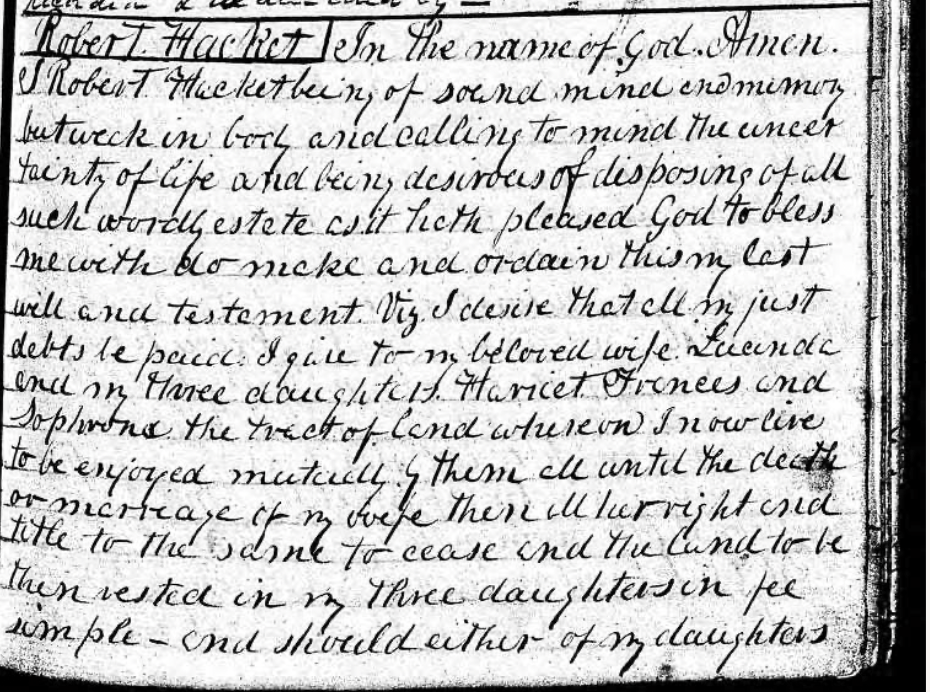 Robert Hacket In the name of God. Amen.
I Robert Hacket being of sound mind and memory
but weck in body and calling to mind the uncer
tainty of life and being desirous of disposing of all
such wordly estate as it hath pleased God to bless
me with do make and ordain this my last
will and testament. Viz, I desire that all my just
debts be paid. I give to my beloved wife Lucinda
and my three daughters. Harriet Frences and
Sophrona the tract of land whereon I now live
to be enjoyed mutually by them all until the death
or marreage of my wife then all her right and
title to the same to cease and the land to be
then vested in my three daughters in fee
simple – and should either of my daughters